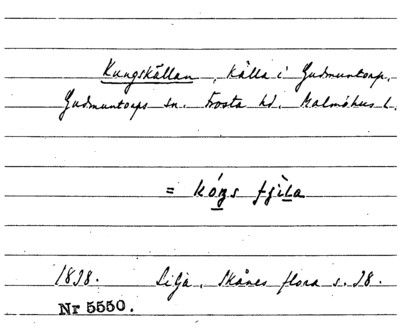 Kungskällan, källa i Gudmuntorp,
Gudmuntorps sn. Frosta hd. Malmöhus l.
= kóŋs tjìla
1838. Lilja, Skånes flora s. 38.
Nr 5550.